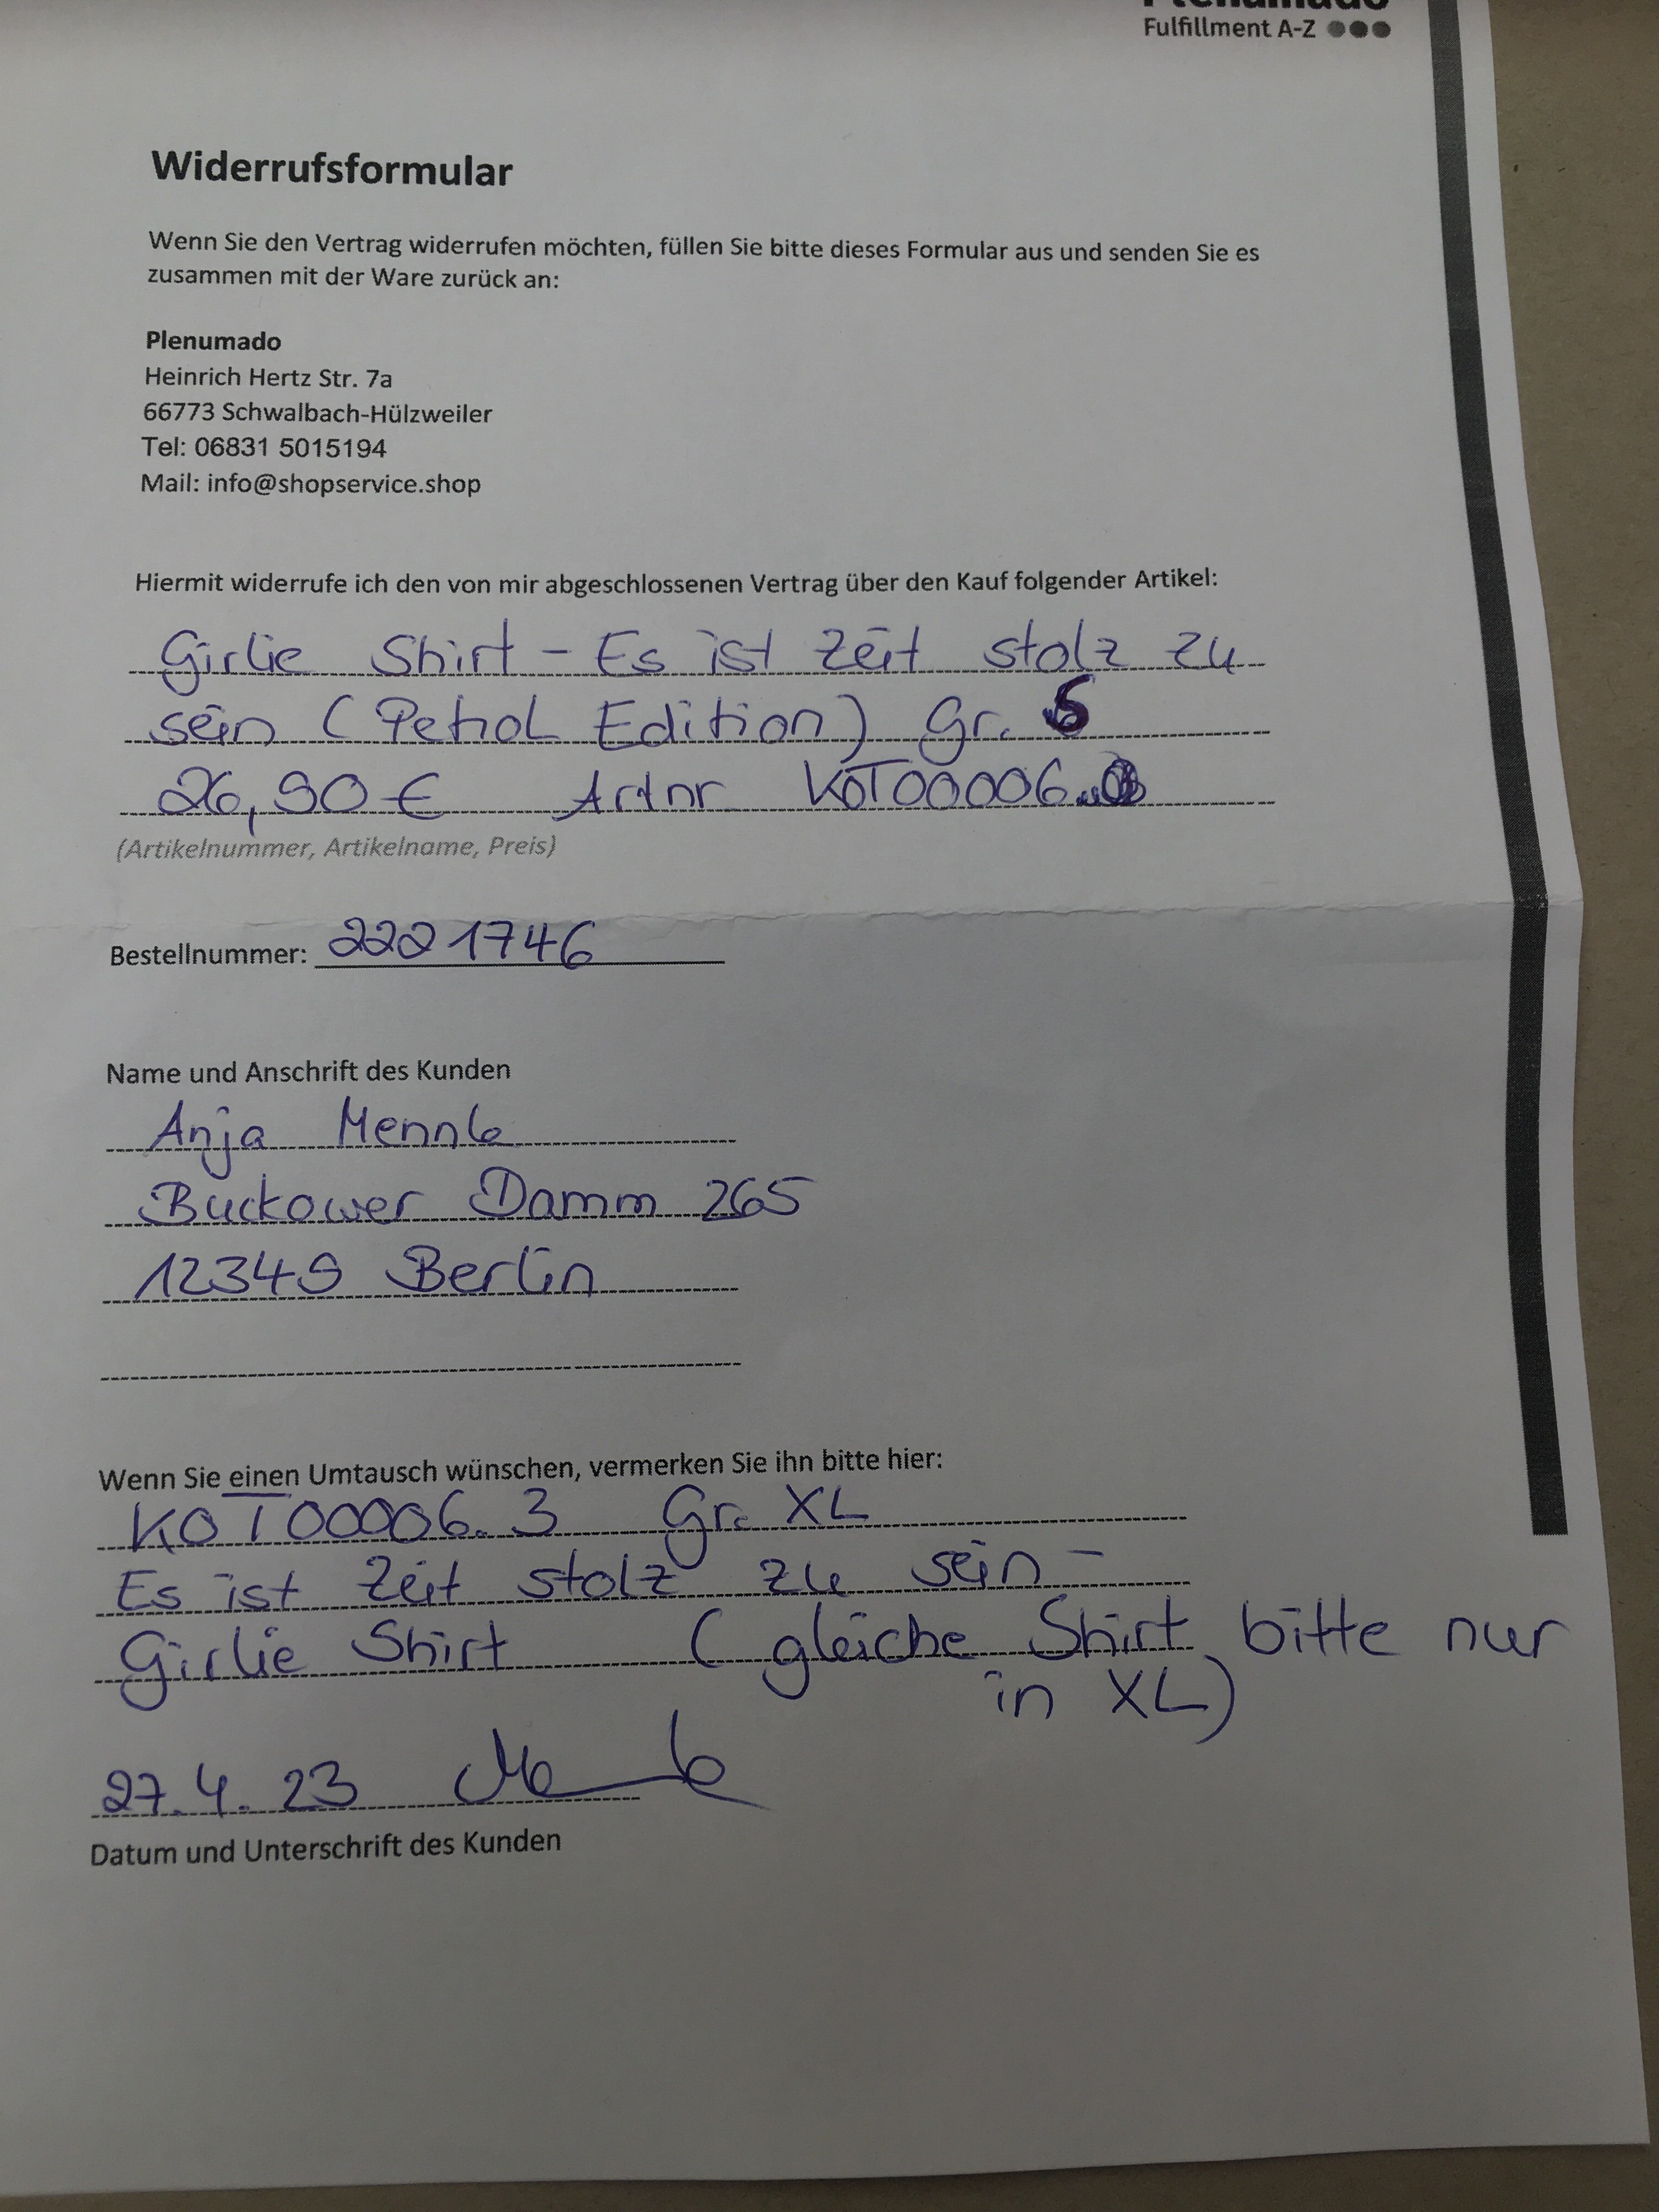 Fulfillment A-Z
Widerrufsformular
Wenn Sie den Vertrag widerrufen möchten, füllen Sie bitte dieses Formular aus und senden Sie es
zusammen mit der Ware zurück an:
Plenumado
Heinrich Hertz Str. 7a
66773 Schwalbach-Hülzweiler
Tel: 06831 5015194
Mail: info@shopservice.shop
Hiermit widerrufe ich den von mir abgeschlossenen Vertrag über den Kauf folgender Artikel:
Girlie Shirt - Es ist Zeit stolz zu
sein (Petrol Edition) Gr.
26,90 € Artnr KOT00006.
(Artikelnummer, Artikelname, Preis)
Bestellnummer: 2221746
Name und Anschrift des Kunden
Anja Mennle
Buckower Damm 265
12349 Berlin
Wenn Sie einen Umtausch wünschen, vermerken Sie ihn bitte hier:
KOT00006.3 Gr. XL
Es ist Zeit stolz zu sein -
Girlie Shirt (gleiche Shirt bitte nur
in XL)
27.4.23
Datum und Unterschrift des Kunden